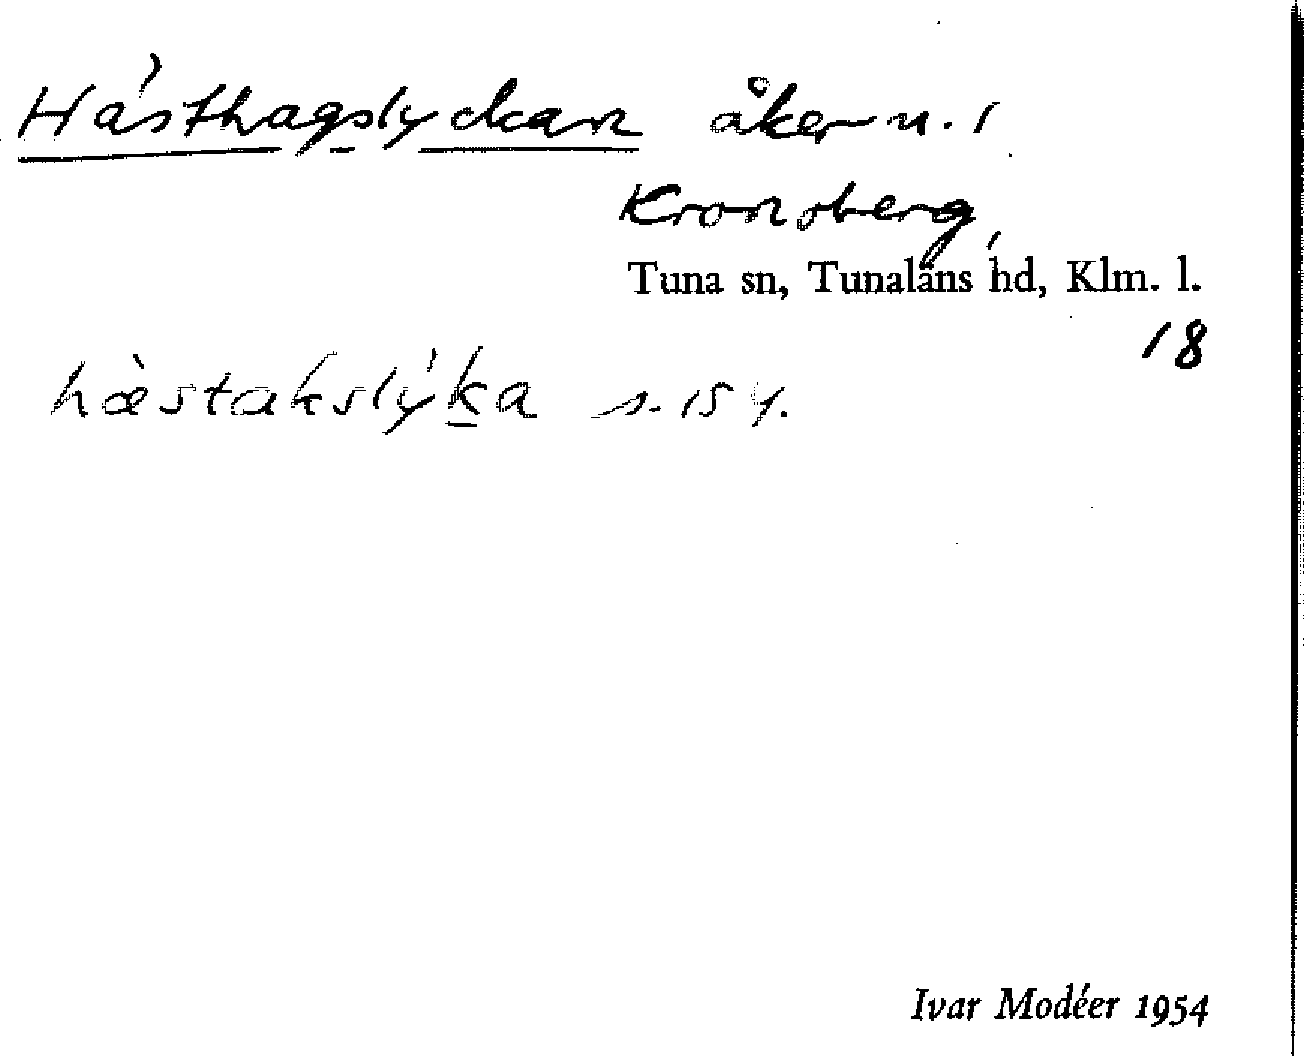 Hästhagslyckan åker n. 1
Kronoberg,
Tuna sn, Tunaläns hd, Klm. l.
18
hæ̀stakslýka s. 154.
Ivar Modéer 1954